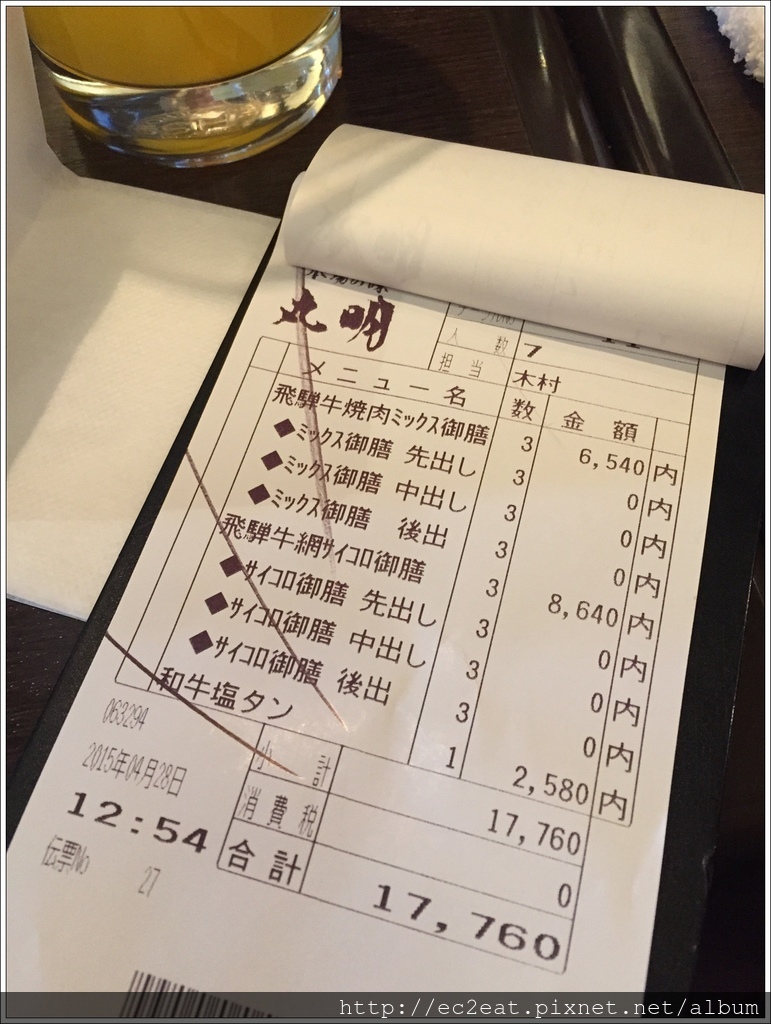 丸明
人数 7
担当 木村
メニュー名 数 金額
飛騨牛焼肉ミックス御膳 3 6,540 内
◆ミックス御膳 先出し 3 0 内
◆ミックス御膳 中出し 3 0 内
◆ミックス御膳 後出 3 0 内
飛騨牛網サイコロ御膳 3 8,640 内
◆サイコロ御膳 先出し 3 0 内
◆サイコロ御膳 中出し 3 0 内
◆サイコロ御膳 後出 3 0 内
和牛塩タン 1 2,580 内
063294
小計 17,760
2015年04月28日
消費税 0
12:54
合計 17,760
伝票No 27
http://ec2eat.pixnet.net/album